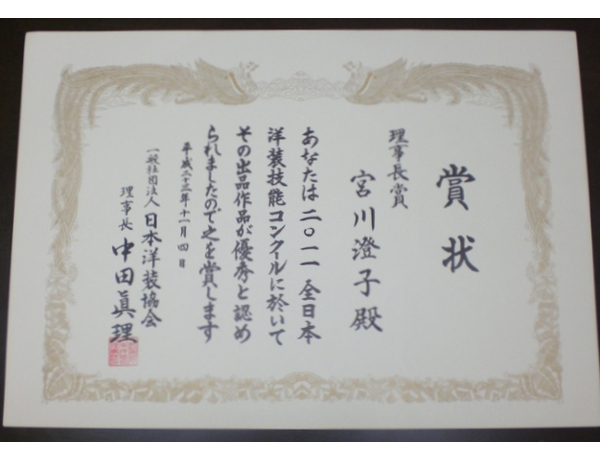 賞状
理事長賞
宮川澄子殿
あなたは二〇一一全日本
洋装技能コンクールに於いて
その出品作品が優秀と認め
られましたので之を賞します
平成二十三年十一月四日
一般社団法人日本洋装協会
理事長中田眞理